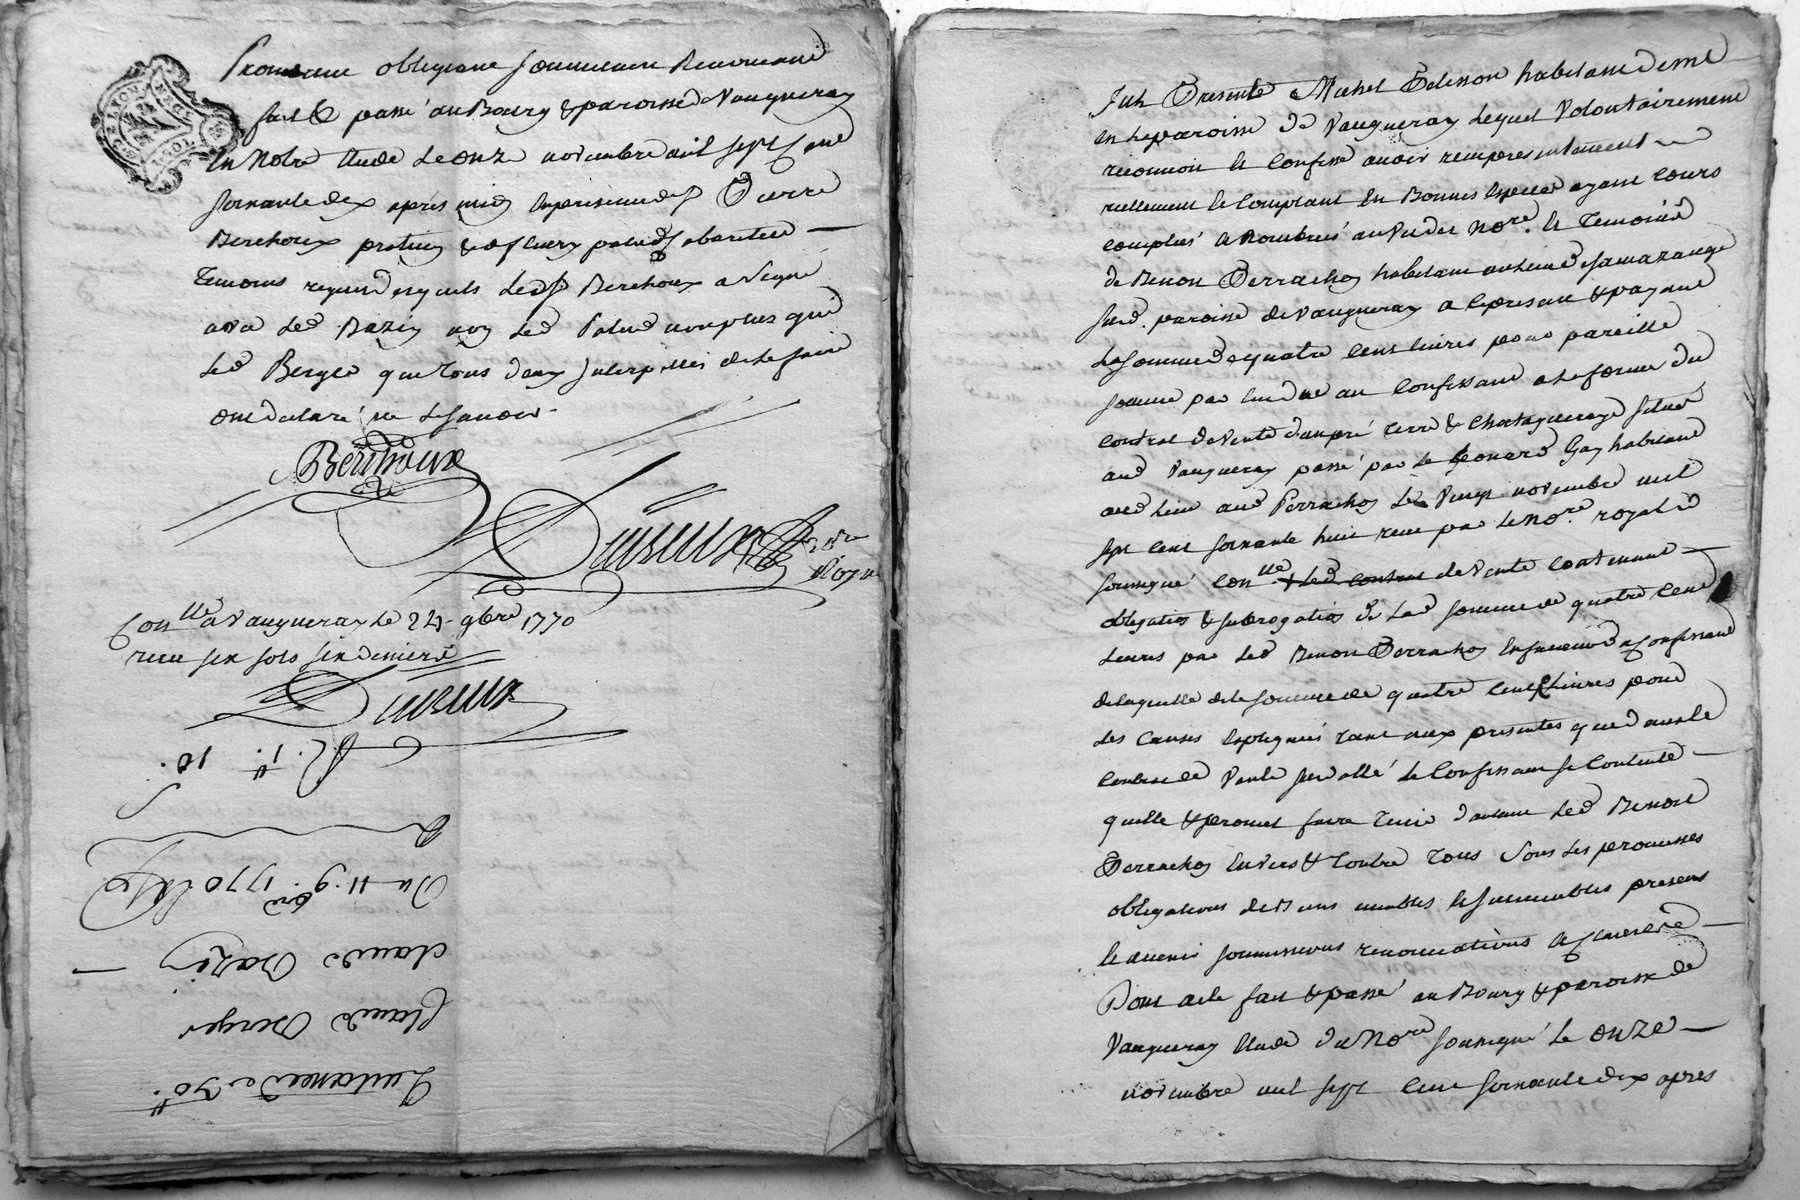 Promettant obligeant soumettant Renonceant
fait & passé au Bourg & paroisse de Vaugneray
en Notre Etude Le onze novembre mil sept cent
soixante dix apres midy en presence de Sr Pierre
Berchoux praticien & de fleury palud
Temoins requis desquels Led. Sr Berchoux a signé
avec Led. Bazin non Led. Palud non plus que
Led. Berger que tous deux Interpellés de Le faire
ont declaré ne Le scavoir.
Berchoux
Duvieux
nore
Royal
Conllé a Vaugneray Le 24 9bre 1770
recu six sols six deniers
Duvieux
R. 1ll. 10.
Du 11. 9bre 1770
Claude Bazin
Claude Berger
Quittance de 30ll.
Fut Present Michel Delisson habitant de me
en La paroisse de Vaugneray Lequel Volontairement
reconnoit & Confesse avoir recu presentement
reellement & Comptant En Bonnes especes ayant Cours
comptées & Nombrées au Vu des Nore. & Temoins
de Benoit Perrachon habitant au Lieu de
sur d. paroisse de Vaugneray a ce present & payant
La somme de quatre Cent Livres pour pareille
somme par Lui due au Confessant a La forme du
Contrat de Vente d'un pré Terre & Chataigneraye situés
aud. Vaugneray passé par Leonard Gay habitant
aud. Lieu aud. Perrachon Le Vingt novembre mil
sept Cent soixante huit recu par Le Nore. royal
soussigné Conllé Led. Contrat de Vente Contenant
obligation & subrogation de Lad. somme de quatre Cent
Livres par Led. Benoit Perrachon En faveur du Confessant
de laquelle dite somme de quatre Cent Livres pour
Les Causes Expliquées tant aux presentes que dans Le
Contrat de Vente sus allé. Le Confessant se Contente
quitte & promet faire tenir quitte Led. Benoit
Perrachon Envers & Contre Tous Sous Les promesses
obligations de Biens meubles & Immeubles presens
& avenir soumissions renonciations & Clauses
Dont acte fait & passé au Bourg & paroisse de
Vaugneray Etude du Nore soussigné Le onze
novembre mil sept Cent soixante dix apres